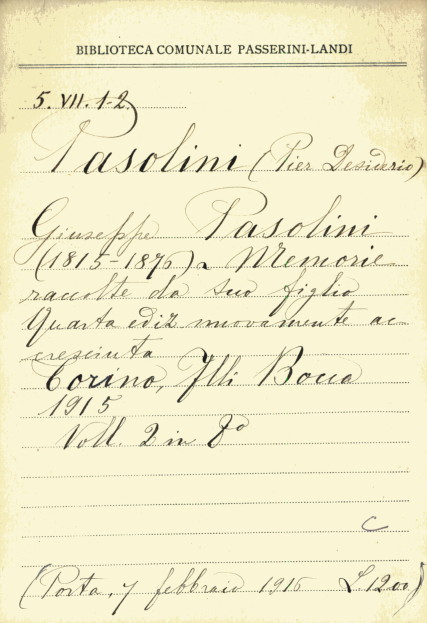 BIBLIOTECA COMUNALE PASSERINI-LANDI
5. VII. 1-2.
Pasolini (Pier Desiderio)
Giuseppe Pasolini
(1815-1876) - Memorie
raccolte da suo figlio
Quarta ediz nuovamente ac-
cresciuta
Torino, Flli Bocca
1915
Voll. 2 in 8°
C
(Porta, 7 febbraio 1916 L. 12 00)